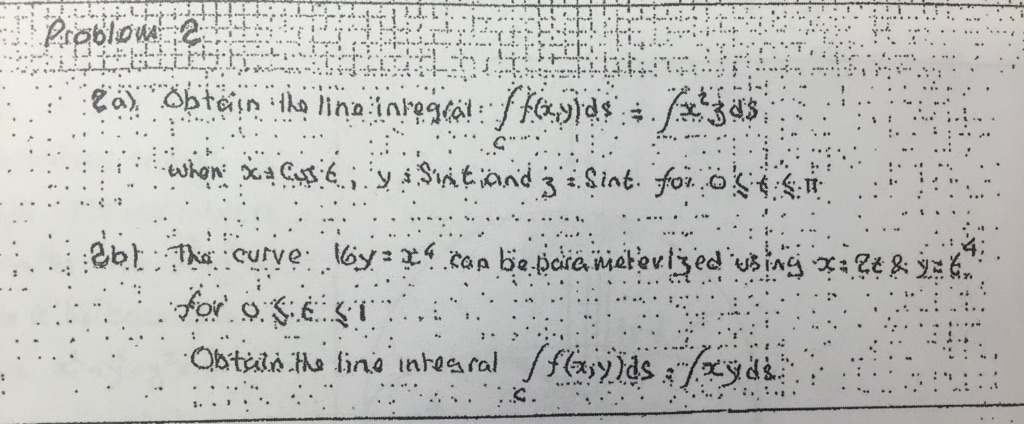 Problem 2
2a). Obtain the line integral: ∫_C f(x,y)ds = ∫x²zds
when x = Cos t, y = Sin t and z = Sint. for 0 ≤ t ≤ π
2b). The curve 16y = x⁴ can be parameterized using x = 2t & y = t⁴
for 0 ≤ t ≤ 1
Obtain the line integral ∫_C f(x,y)ds = ∫xyds